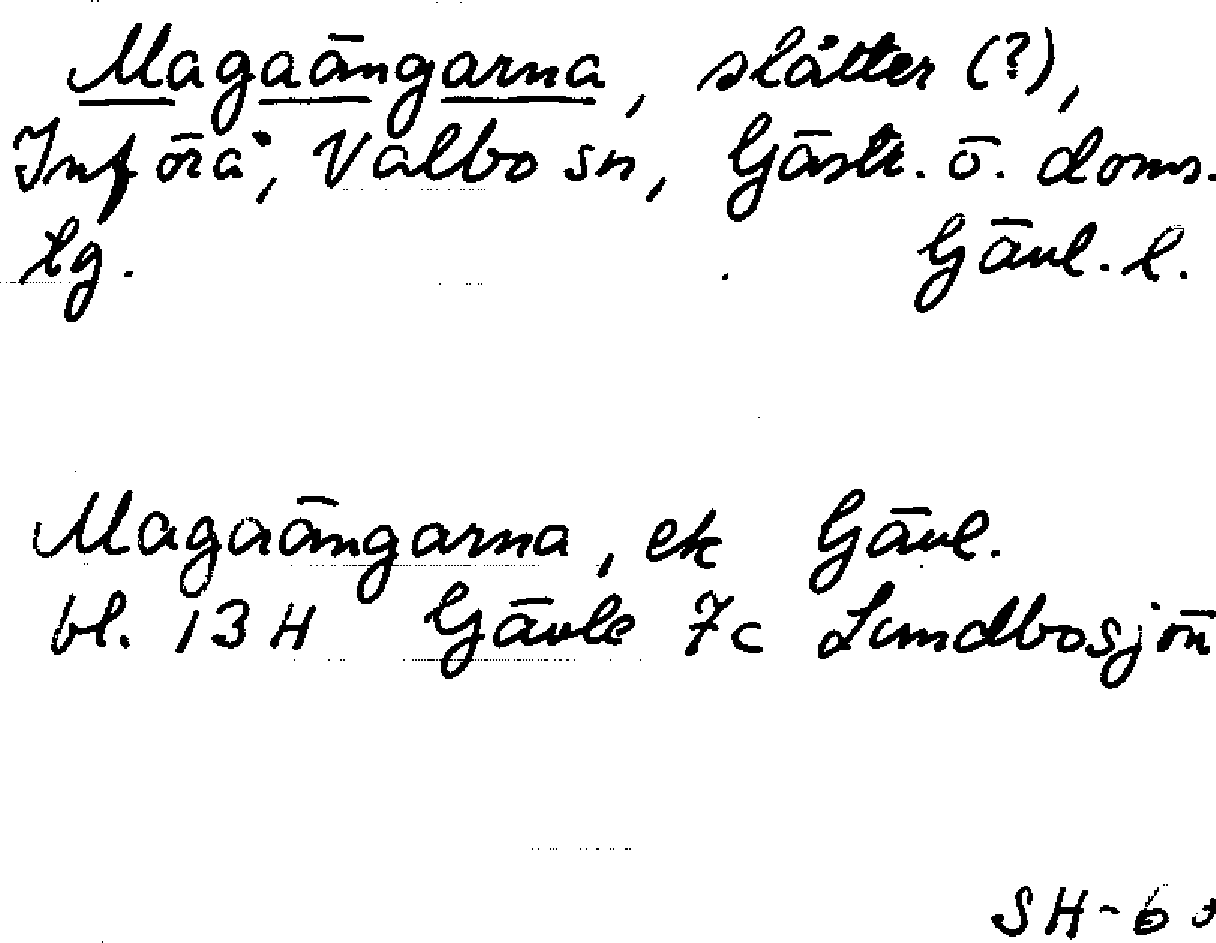 Magaängarna, slåtter (?),
Inf öra, Valbo sn, Gästr. ö. doms.
lg. Gävl. l.
Magaängarna, ek Gävl.
bl. 13 H Gävle 7c Lundbosjön
SH-6